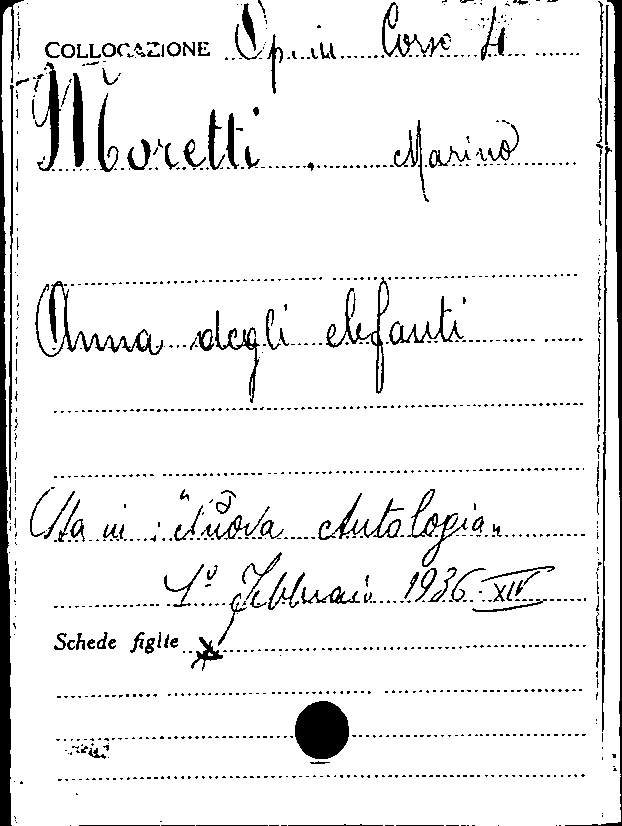 COLLOCAZIONE Op. in Corso 4
Moretti, Marino
Anna degli elefanti
Sta in: "Nuova Antologia"
1º Febbraio 1936-XIV
Schede figlie